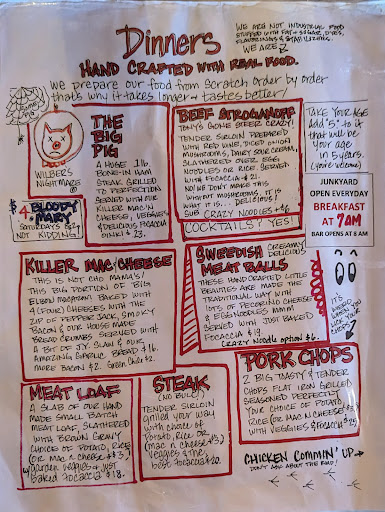 Dinners
HAND CRAFTED WITH REAL FOOD.
We prepare our food from scratch order by order
thats why it takes longer & tastes better!
WE ARE NOT INDUSTRIAL FOOD
STUFFED WITH FAT & SUGAR, DYES,
FLAVORINGS & STABILIZERS.
WE ARE
WILBERS
NIGHTMARE
THE
BIG
PIG
A HUGE 1 lb.
BONE-IN HAM
STEAK GRILLED
TO PERFECTION
SERVED WITH OUR
KILLER MAC N'
CHEESE, VEGGIES
& DELICIOUS FOCACCIA
OINK! $23.
$4 BLOODY
MARY
SATURDAYS
NOT KIDDING!
BEEF STROGANOFF
TONY'S GONE BEEFE CRAZY!
TENDER SIRLOIN PREPARED
WITH RED WINE, DICED ONION
MUSHROOMS, DAIRY SOUR CREAM,
SLATHERED OVER EGG
NOODLES OR RICE. SERVED
WITH FOCACCIA $21.
NO! WE DON'T MAKE THIS
WITHOUT MUSHROOMS. IT IS
WHAT IT IS... DELICIOUS!
SUB CRAZY NOODLES +$6
COCKTAILS? YES!
TAKE YOUR AGE
ADD "5" TO IT
THAT WILL BE
YOUR AGE
IN 5 YEARS.
(You're welcome)
JUNKYARD
OPEN EVERYDAY
BREAKFAST
AT 7AM
BAR OPENS AT 8 AM
KILLER MAC CHEESE
THIS IS NOT YO MAMA'S!
THIS BIG PORTION OF BIG
ELBOW MACARONI BAKED WITH
4 (FOUR) CHEESES WITH THE
ZIP OF PEPPER JACK, SMOKY
BACON & OUR HOUSE MADE
BREAD CRUMBS. SERVED WITH
A BIT OF J.Y. SLAW & OUR
AMAZING GARLIC BREAD $16
MORE BACON $2. Green Chile $2.
SWEDISH CREAMY DELICIOUS
MEAT BALLS
THESE HAND CRAFTED LITTLE
BEAUTIES ARE MADE THE
TRADITIONAL WAY WITH
LOTS OF PECORINO CHEESE
& EGG NOODLES MMM
SERVED WITH JUST BAKED
FOCACCIA $19.
CRAZY NOODLE option $6.
IT'S
WHEN
YOU
LICK
YOUR
CHOPS
MEAT LOAF
A SLAB OF OUR HAND
MADE SMALL BATCH
MEAT LOAF, SLATHERED
WITH BROWN GRAVY
CHOICE OF POTATO, RICE
OR MAC N CHEESE +$3,
w/garden VEGGIES & JUST
BAKED FOCACCIA $18.
STEAK
(NO BULL!)
TENDER SIRLOIN
grilled your way
with choice of
POTATO, RICE OR
(mac n cheese +$3)
VEGGIES & the
best focaccia $20.
PORK CHOPS
2 BIG TASTY & TENDER
CHOPS FLAT IRON GRILLED
SEASONED PERFECTLY.
YOUR CHOICE OF POTATO,
RICE (OR MAC N CHEESE $3)
WITH VEGGIES & FOCACCIA $25
CHICKEN COMMIN' UP→
DON'T ASK ABOUT THE ROAD!